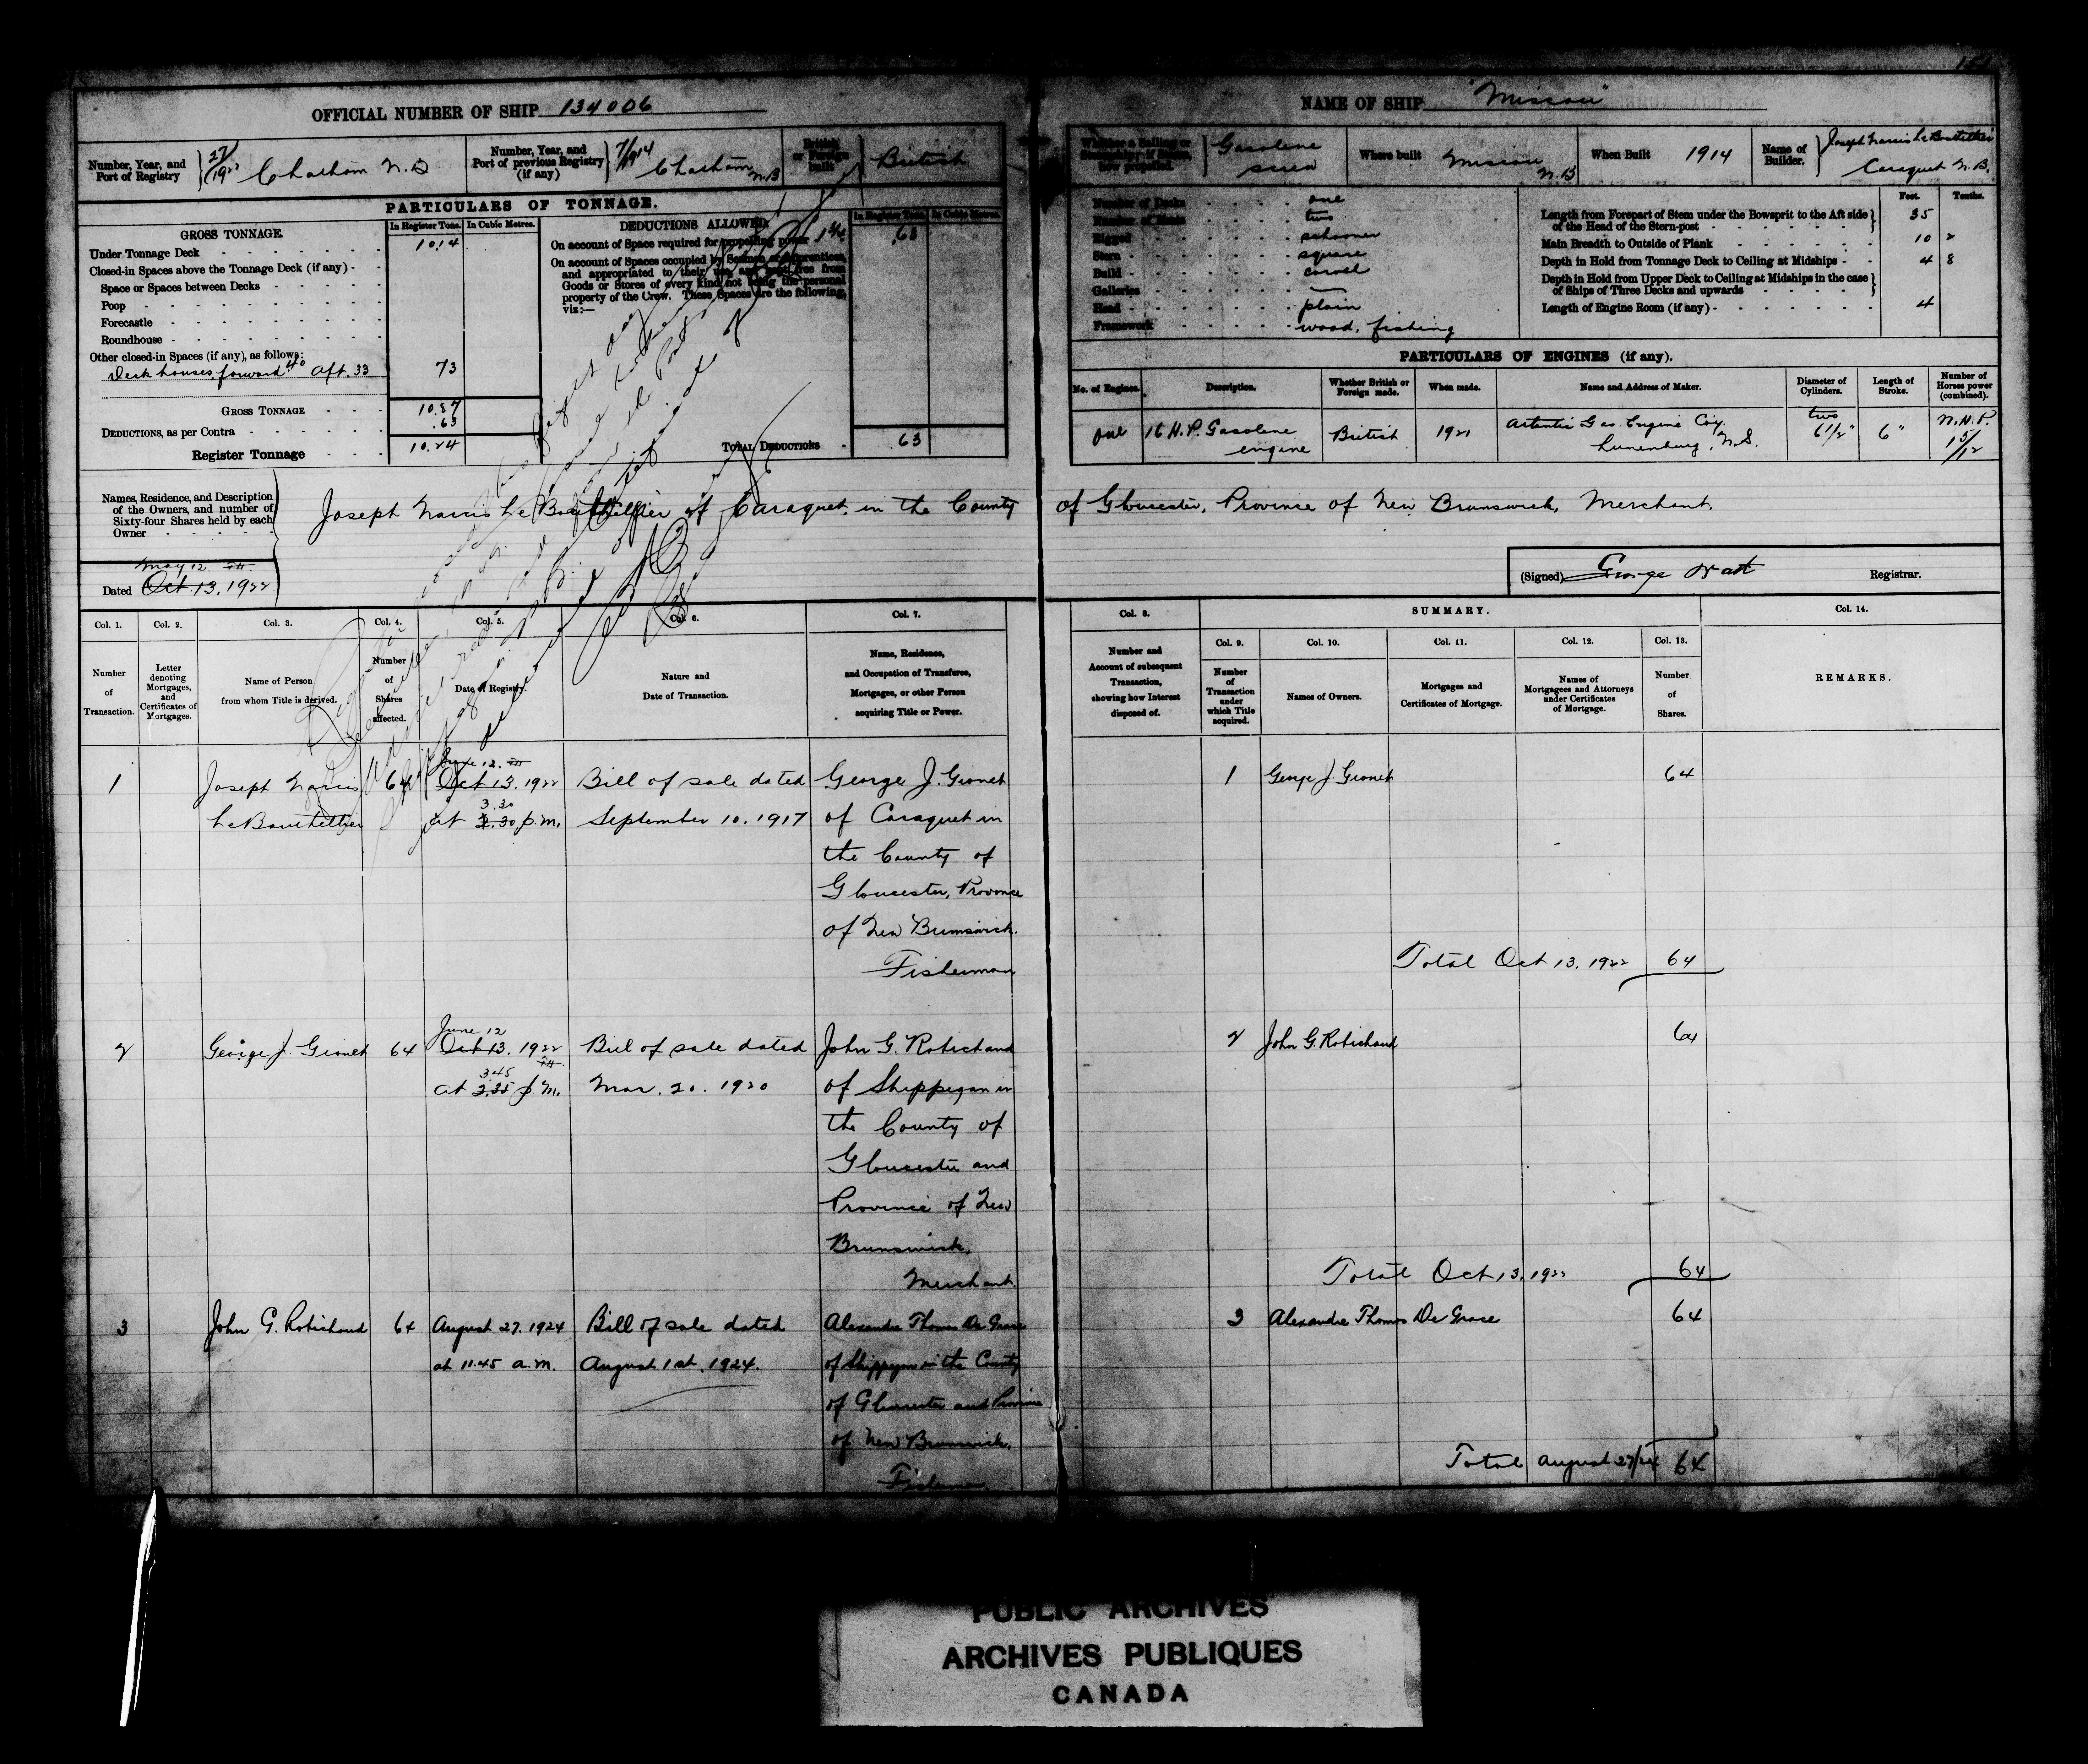 OFFICIAL NUMBER OF SHIP 134006
NAME OF SHIP "Miscou"
Number, Year, and Port of Registry 27/1922 Chatham N.B
Number, Year, and Port of previous Registry (if any) 7/1914 Chatham N.B
British or Foreign built British
Whether a Sailing or Steam ship; if Steam, how propelled. Gasolene screw
Where built Miscou N.B
When Built 1914
Name of Builder. Joseph Narcis Le Bouthillier Caraquet N.B.
PARTICULARS OF TONNAGE.
GROSS TONNAGE.
In Register Tons. In Cubic Metres.
Under Tonnage Deck 10.14
Closed-in Spaces above the Tonnage Deck (if any)
Space or Spaces between Decks
Poop
Forecastle
Roundhouse
Other closed-in Spaces (if any), as follows:
Deck houses, forward 40 Aft. 33 73
GROSS TONNAGE 10.87
DEDUCTIONS, as per Contra .63
Register Tonnage 10.24
DEDUCTIONS ALLOWED.
In Register Tons. In Cubic Metres.
On account of Space required for propelling power .63
On account of Spaces occupied by Seamen or Apprentices,
and appropriated to their use, and kept free from
Goods or Stores of every kind not being the personal
property of the Crew. These Spaces are the following,
viz:—
TOTAL DEDUCTIONS .63
Number of Decks one
Number of Masts two
Rigged schooner
Stern square
Build carvel
Galleries —
Head plain
Framework wood, fishing
Feet. Tenths.
Length from Forepart of Stem under the Bowsprit to the Aft side of the Head of the Stern-post 35
Main Breadth to Outside of Plank 10 2
Depth in Hold from Tonnage Deck to Ceiling at Midships 4 8
Depth in Hold from Upper Deck to Ceiling at Midships in the case of Ships of Three Decks and upwards
Length of Engine Room (if any) 4
PARTICULARS OF ENGINES (if any).
No. of Engines. Description. Whether British or Foreign made. When made. Name and Address of Maker. Diameter of Cylinders. Length of Stroke. Number of Horses power (combined).
One 16 H.P. Gasolene engine British 1921 Atlantic Gas Engine Coy. Lunenburg, N.S. two 6 1/2" 6" N.H.P. 1 5/12
Names, Residence, and Description
of the Owners, and number of
Sixty-four Shares held by each
Owner
Joseph Narcis Le Bouthillier of Caraquet, in the County of Gloucester, Province of New Brunswick, Merchant.
May 12
Dated Oct. 13, 1922
(Signed) George Watt Registrar.
Col. 1. Col. 2. Col. 3. Col. 4. Col. 5. Col. 6. Col. 7. Col. 8. SUMMARY. Col. 14.
Col. 9. Col. 10. Col. 11. Col. 12. Col. 13.
Number of Transaction.
Letter denoting Mortgages, and Certificates of Mortgages.
Name of Person from whom Title is derived.
Number of Shares affected.
Date of Registry.
Nature and Date of Transaction.
Name, Residence, and Occupation of Transferee, Mortgagee, or other Person acquiring Title or Power.
Number and Account of subsequent Transaction, showing how Interest disposed of.
Number of Transaction under which Title acquired.
Names of Owners.
Mortgages and Certificates of Mortgage.
Names of Mortgagees and Attorneys under Certificates of Mortgage.
Number of Shares.
REMARKS.
June 12.
1 Joseph Narcis 64 Oct 13. 1922 Bill of sale dated George J. Gionet 1 George J. Gionet 64
3.30
Le Bouthillier at p.m. September 10. 1917 of Caraquet in
the County of
Gloucester, Province
of New Brunswick.
Fisherman
Total Oct 13, 1922 64
June 12
2 George J. Gionet 64 Oct 13. 1922 Bill of sale dated John G. Robichaud 2 John G. Robichaud 64
3.45
at 3.35 p.m. Mar. 20. 1920 of Shippegan in
the County of
Gloucester and
Province of New
Brunswick,
Merchant.
Total Oct 13, 1922 64
3 John G. Robichaud 64 August 27. 1924 Bill of sale dated Alexandre Thomas De Grace 3 Alexandre Thomas De Grace 64
at 11.45 a.m. August 1st. 1924. of Shippegan in the County
of Gloucester and Province
of New Brunswick.
Fisherman
Total August 27/24 64
PUBLIC ARCHIVES
ARCHIVES PUBLIQUES
CANADA